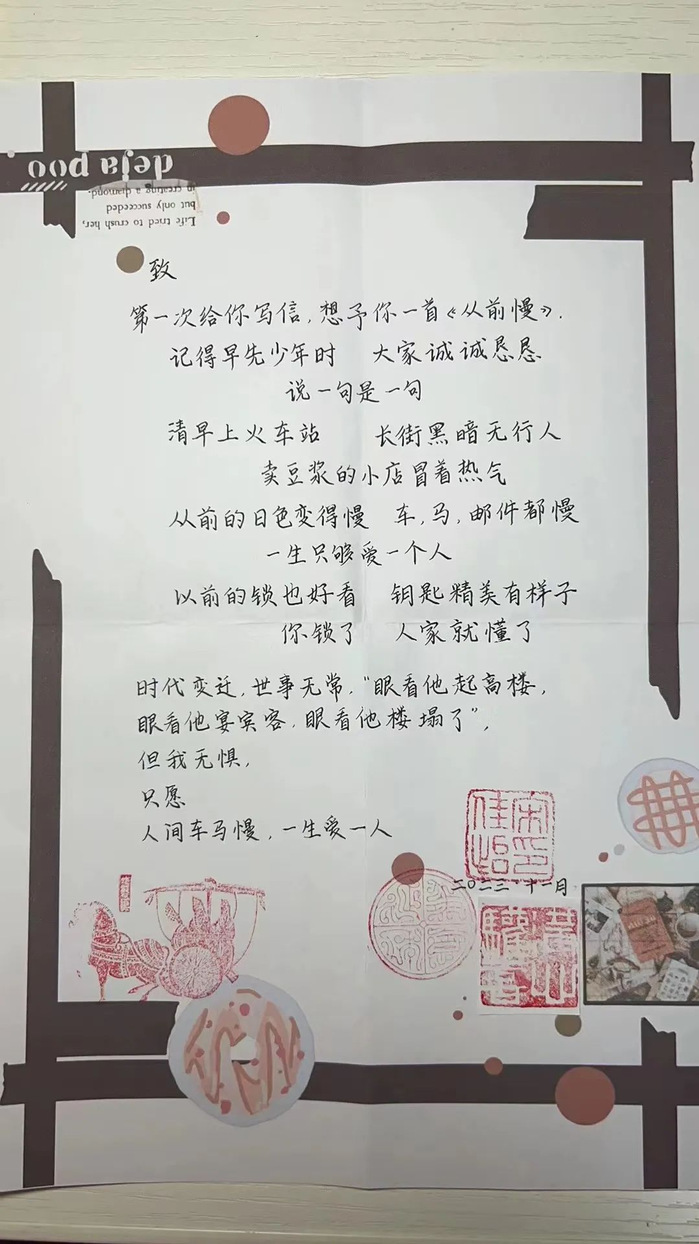 deja poo
Life tried to crush her,
but only succeeded
in creating a diamond.
致
第一次给你写信，想予你一首《从前慢》.
记得早先少年时 大家诚诚恳恳
说一句是一句
清早上火车站 长街黑暗无行人
卖豆浆的小店冒着热气
从前的日色变得慢 车，马，邮件都慢
一生只够爱一个人
以前的锁也好看 钥匙精美有样子
你锁了 人家就懂了
时代变迁，世事无常，“眼看他起高楼，
眼看他宴宾客，眼看他楼塌了”，
但我无惧，
只愿
人间车马慢，一生爱一人
二〇二三 十一月